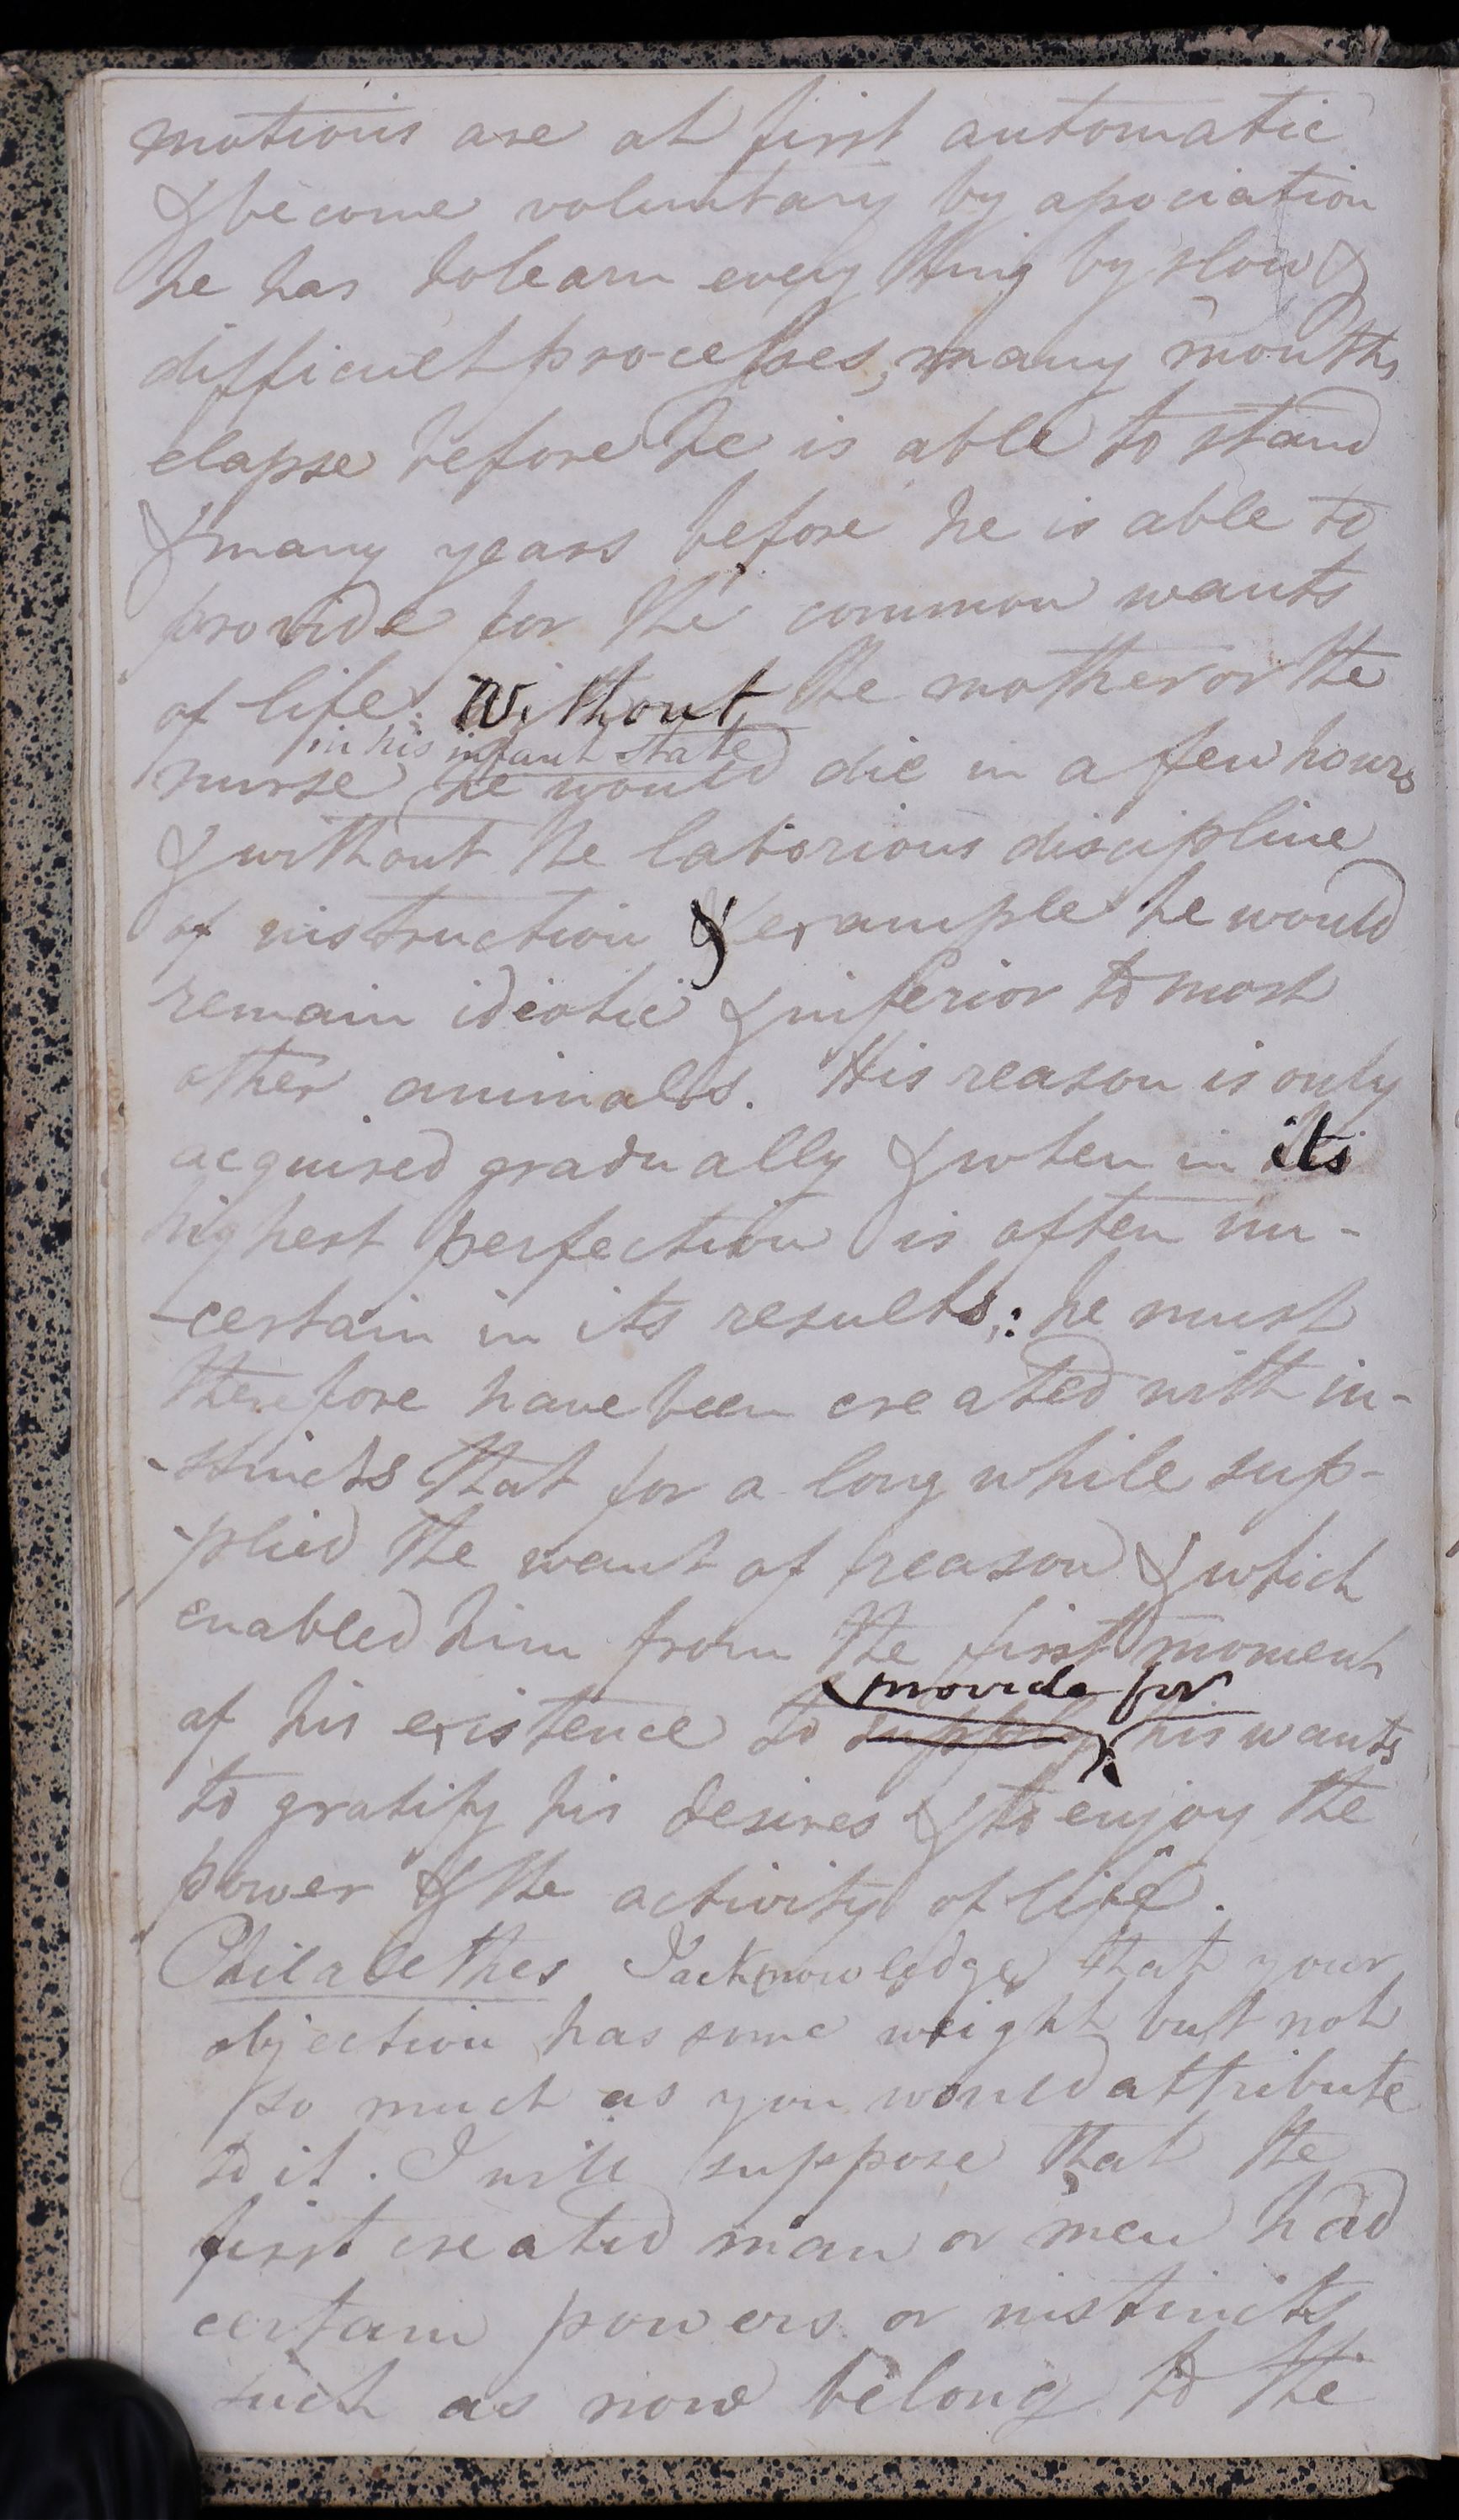 motions are at first automatic
& become voluntary by association
he has to learn every thing by slow &
difficult processes, many months
elapse before he is able to stand
& many years before he is able to
provide for the common wants
of life. Without the mother or the
in his infant state
nurse he would die in a few hours
& without the laborious discipline
of instruction & example he would
remain idiotic & inferior to most
other animals. His reason is only
acquired gradually & when in its
highest perfection is often un-
-certain in its results: he must
therefore have been created with in-
-stincts that for a long while sup-
-plied the want of reason & which
enabled him from the first moment
provide for
of his existence to supply his wants
to gratify his desires & to enjoy the
power & the activity of life.
Philalethes I acknowledge that your
objection has some weight but not
so much as you would attribute
to it. I will suppose that the
first created man or men had
certain powers or instincts
such as now belong to the